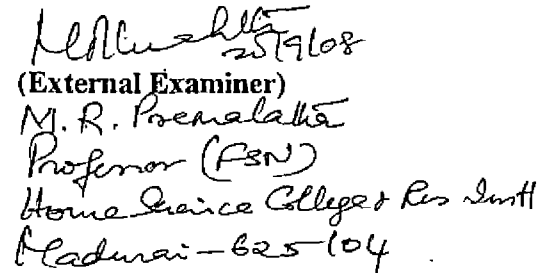 25/9/08
(External Examiner)
M. R. Premalatha
Professor (FSN)
Home Science College & Res Instt
Madurai-625-104.